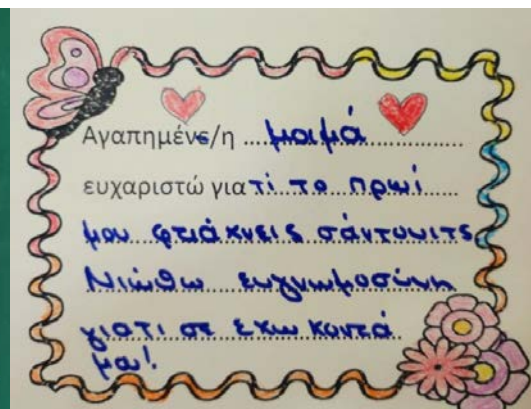 Αγαπημένε/η μαμά
ευχαριστώ για τί το πρωί
μου φτιάχνεις σάντουιτς
Νιώθω ευγνωμοσύνη
γιατι σε έχω κοντά
μα!